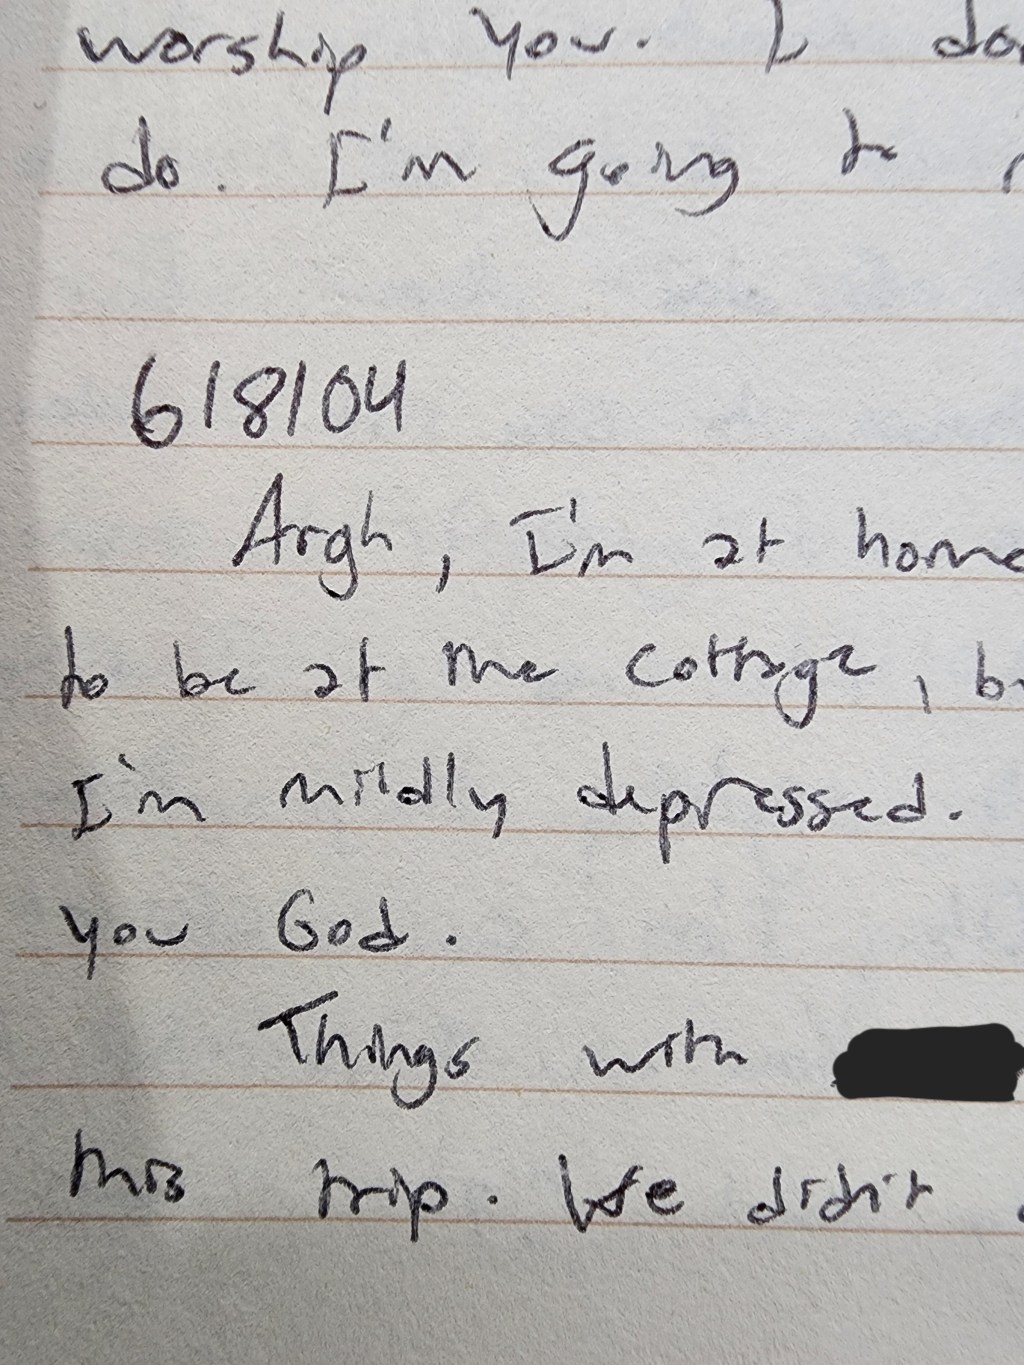 worship you. I
do. I'm going to
6/8/04
Argh, I'm at home
to be at the cottage,
I'm mildly depressed.
you God.
Things with
this trip. We didn't